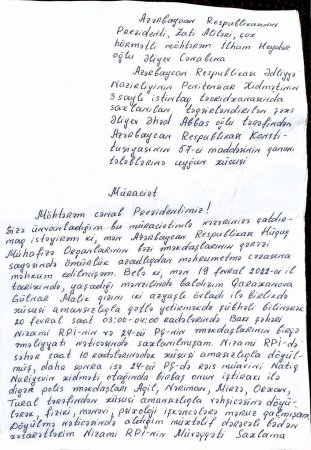 Azərbaycan Respublikasının
Prezidenti, Zati Aliləri, çox
hörmətli möhtərəm İlham Heydər
oğlu Əliyev Cənabına
Azərbaycan Respublikası Ədliyyə
Nazirliyinin Penitensiar Xidmətinin
3 saylı istintaq təcridxanasında
saxlanılan təqsirləndirilən şəxs
Əliyev Əhəd Abbas oğlu tərəfindən
Azərbaycan Respublikası Konsti-
tusiyasının 57-ci maddəsinin qanuni
tələblərinə uyğun xüsusi
Müraciət
Möhtərəm cənab Prezidentimiz!
Sizə ünvanladığım bu müraciətimlə nəzərinizə çatdır-
maq istəyirəm ki, mən Azərbaycan Respublikası Hüquq
Mühafizə Orqanlarının bəzi əməkdaşlarının qərəzi
sayəsində ömürlük azadlıqdan məhrumetmə cəzasına
məhkum edilmişəm. Belə ki, mən 19 fevral 2022-ci il
tarixində, yaşadığı mənzilində baldızım Qaraxanova
Gülnar Malik qızını iki azyaşlı övladı ilə birlikdə
xüsusi amansızlıqla qətlə yetirməkdə şübhəli bilinərək
20 fevral saat 03:00-04:00 radələrində Bakı şəhəri
Nizami RPİ-nin və 24-cü PŞ-nin əməkdaşlarının birgə
əməliyyatı nəticəsində saxlanılmışam. Nizami RPİ-də
səhər saat 10 radələrinədək xüsusi amansızlıqla döyül-
müş, daha sonra isə 24-cü PŞ-də rəis müavini Natiq
Nuriyevin xidməti otağında birbaş onun iştirakı ilə
digər polis əməkdaşları Aqil, Nəriman, Mirzə, Orxan,
Tural tərəfindən xüsusi amansızlıqla vəhşicəsinə döyü-
lərək, fiziki, mənəvi, psixoloji işgəncələrə məruz qalmışam.
Döyülmə nəticəsində aldığım müxtəlif dərəcəli bədən
xəsarətlərim Nizami RPİ-nin Müvəqqəti Saxlama